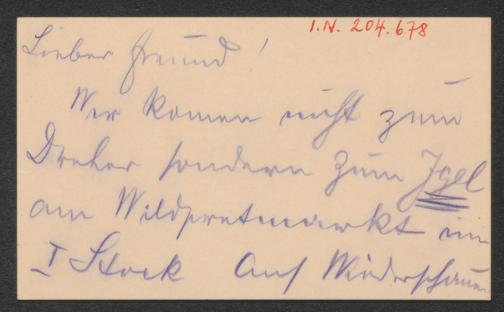 I.N. 204.678
Lieber Freund!
Wir komen nicht zum
Dreher sondern zum Igel
am Wildpretmarkt im
I Stock Auf Wiederschauen